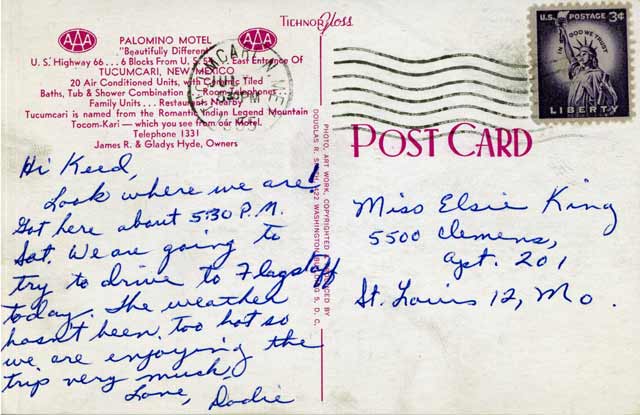 TICHNOR Gloss
AAA
AAA
PALOMINO MOTEL
"Beautifully Different"
U. S. Highway 66 . . . 6 Blocks From U. S. East Entrance Of
TUCUMCARI, NEW MEXICO
20 Air Conditioned Units, with Ceramic Tiled
Baths, Tub & Shower Combination Room Telephones
Family Units . . . Restaurants Nearby
Tucumcari is named from the Romantic Indian Legend Mountain
Tocom-Kari — which you see from our Motel.
Telephone 1331
James R. & Gladys Hyde, Owners
TUCUMCARI N. MEX.
JUL
PM
U.S. POSTAGE 3¢
IN GOD WE TRUST
LIBERTY
POST CARD
PHOTO, ART WORK, COPYRIGHTED PRODUCED BY
DOUGLAS R. 422 WASHINGTON BUILDING S, D. C.
Hi Keed,
Look where we are!
Got here about 5:30 P.M.
Sat. We are going to
try to drive to Flagstaff
today. The weather
hasn't been too hot so
we are enjoying the
trip very much,
Love, Dodie
Miss Elsie King
5500 Clemens,
Apt. 201
St. Louis 12, Mo.